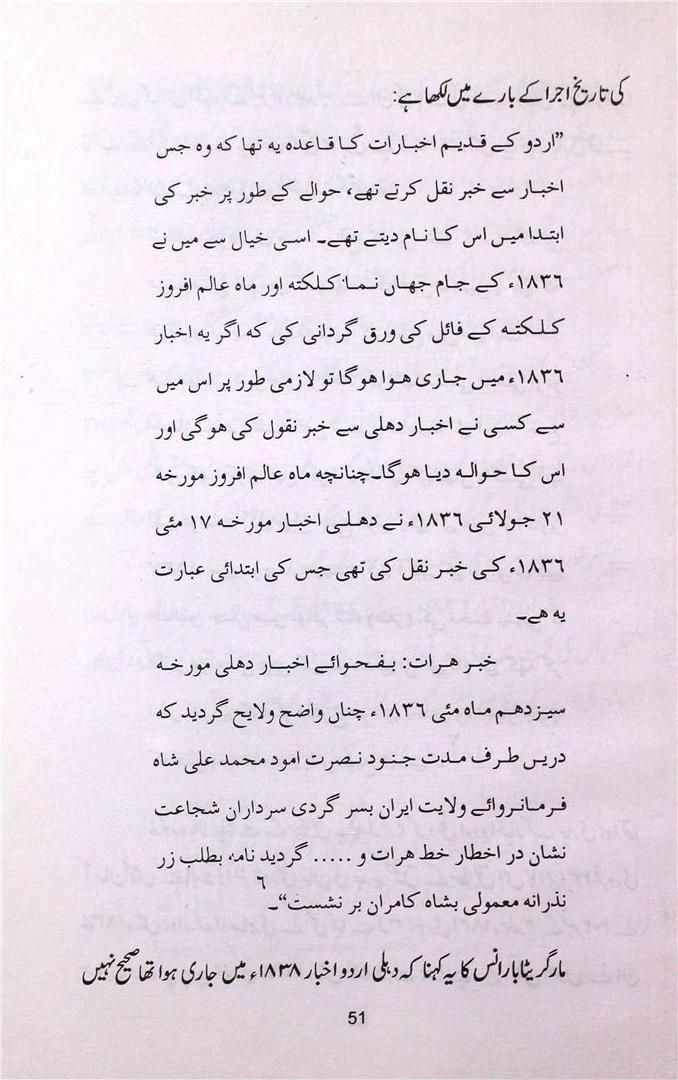 کی تاریخ اجرا کے بارے میں لکھا ہے:
”اردو کے قدیم اخبارات کا قاعدہ یہ تھا کہ وہ جس
اخبار سے خبر نقل کرتے تھے، حوالے کے طور پر خبر کی
ابتدا میں اس کا نام دیتے تھے۔ اسی خیال سے میں نے
۱۸۳۶ء کے جام جہاں نما کلکتہ اور ماہ عالم افروز
کلکتہ کے فائل کی ورق گردانی کی کہ اگر یہ اخبار
۱۸۳۶ء میں جاری ہوا ہوگا تو لازمی طور پر اس میں
سے کسی نے اخبار دھلی سے خبر نقول کی ہوگی اور
اس کا حوالہ دیا ہوگا۔چنانچہ ماہ عالم افروز مورخہ
۲۱ جولائی ۱۸۳۶ء نے دھلی اخبار مورخہ ۱۷ مئی
۱۸۳۶ء کی خبر نقل کی تھی جس کی ابتدائی عبارت
یہ ھے۔
خبر ھرات: بفحوائے اخبار دھلی مورخہ
سیزدھم ماہ مئی ۱۸۳۶ء چناں واضح ولایح گردید کہ
دریں طرف مدت جنود نصرت امود محمد علی شاہ
فرمانروائے ولایت ایران بسر گردی سرداران شجاعت
نشان در اخطار خط ھرات و ..... گردید نامہ بطلب زر
نذرانہ معمولی بشاہ کامران بر نشست“۔۶
مارگریٹا بارانس کا یہ کہنا کہ دہلی اردو اخبار ۱۸۳۸ء میں جاری ہوا تھا صحیح نہیں
51